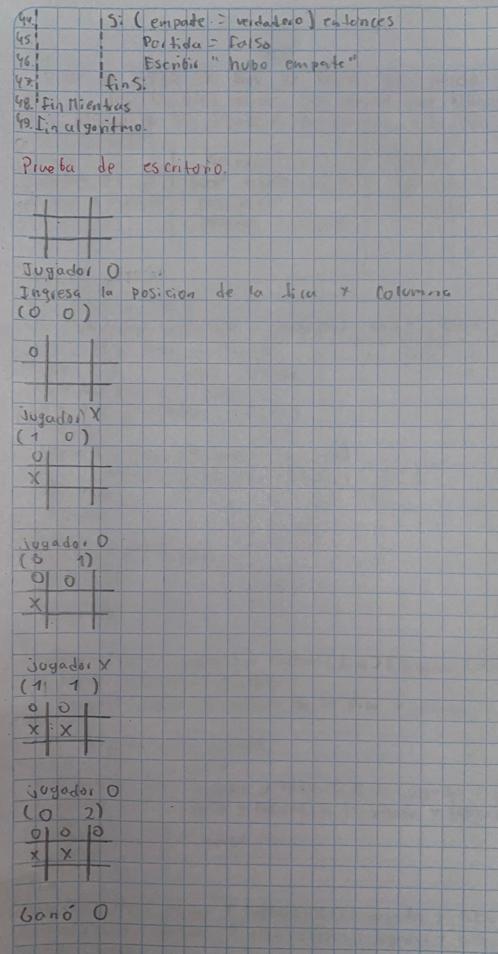 44. Si (empate = verdadero) entonces
45. Partida = Falso
46. Escribir "hubo empate"
47. finSi
48. fin Mientras
49. Fin algoritmo.
Prueba de escritorio.
Jugador O
Ingresa la posicion de la fica x columna
(0 0)
O
Jugador X
(1 0)
O
X
jugador O
(0 1)
O O
X
jugador X
(1 1)
O O
X X
jugador O
(0 2)
O O O
X X
Ganó O